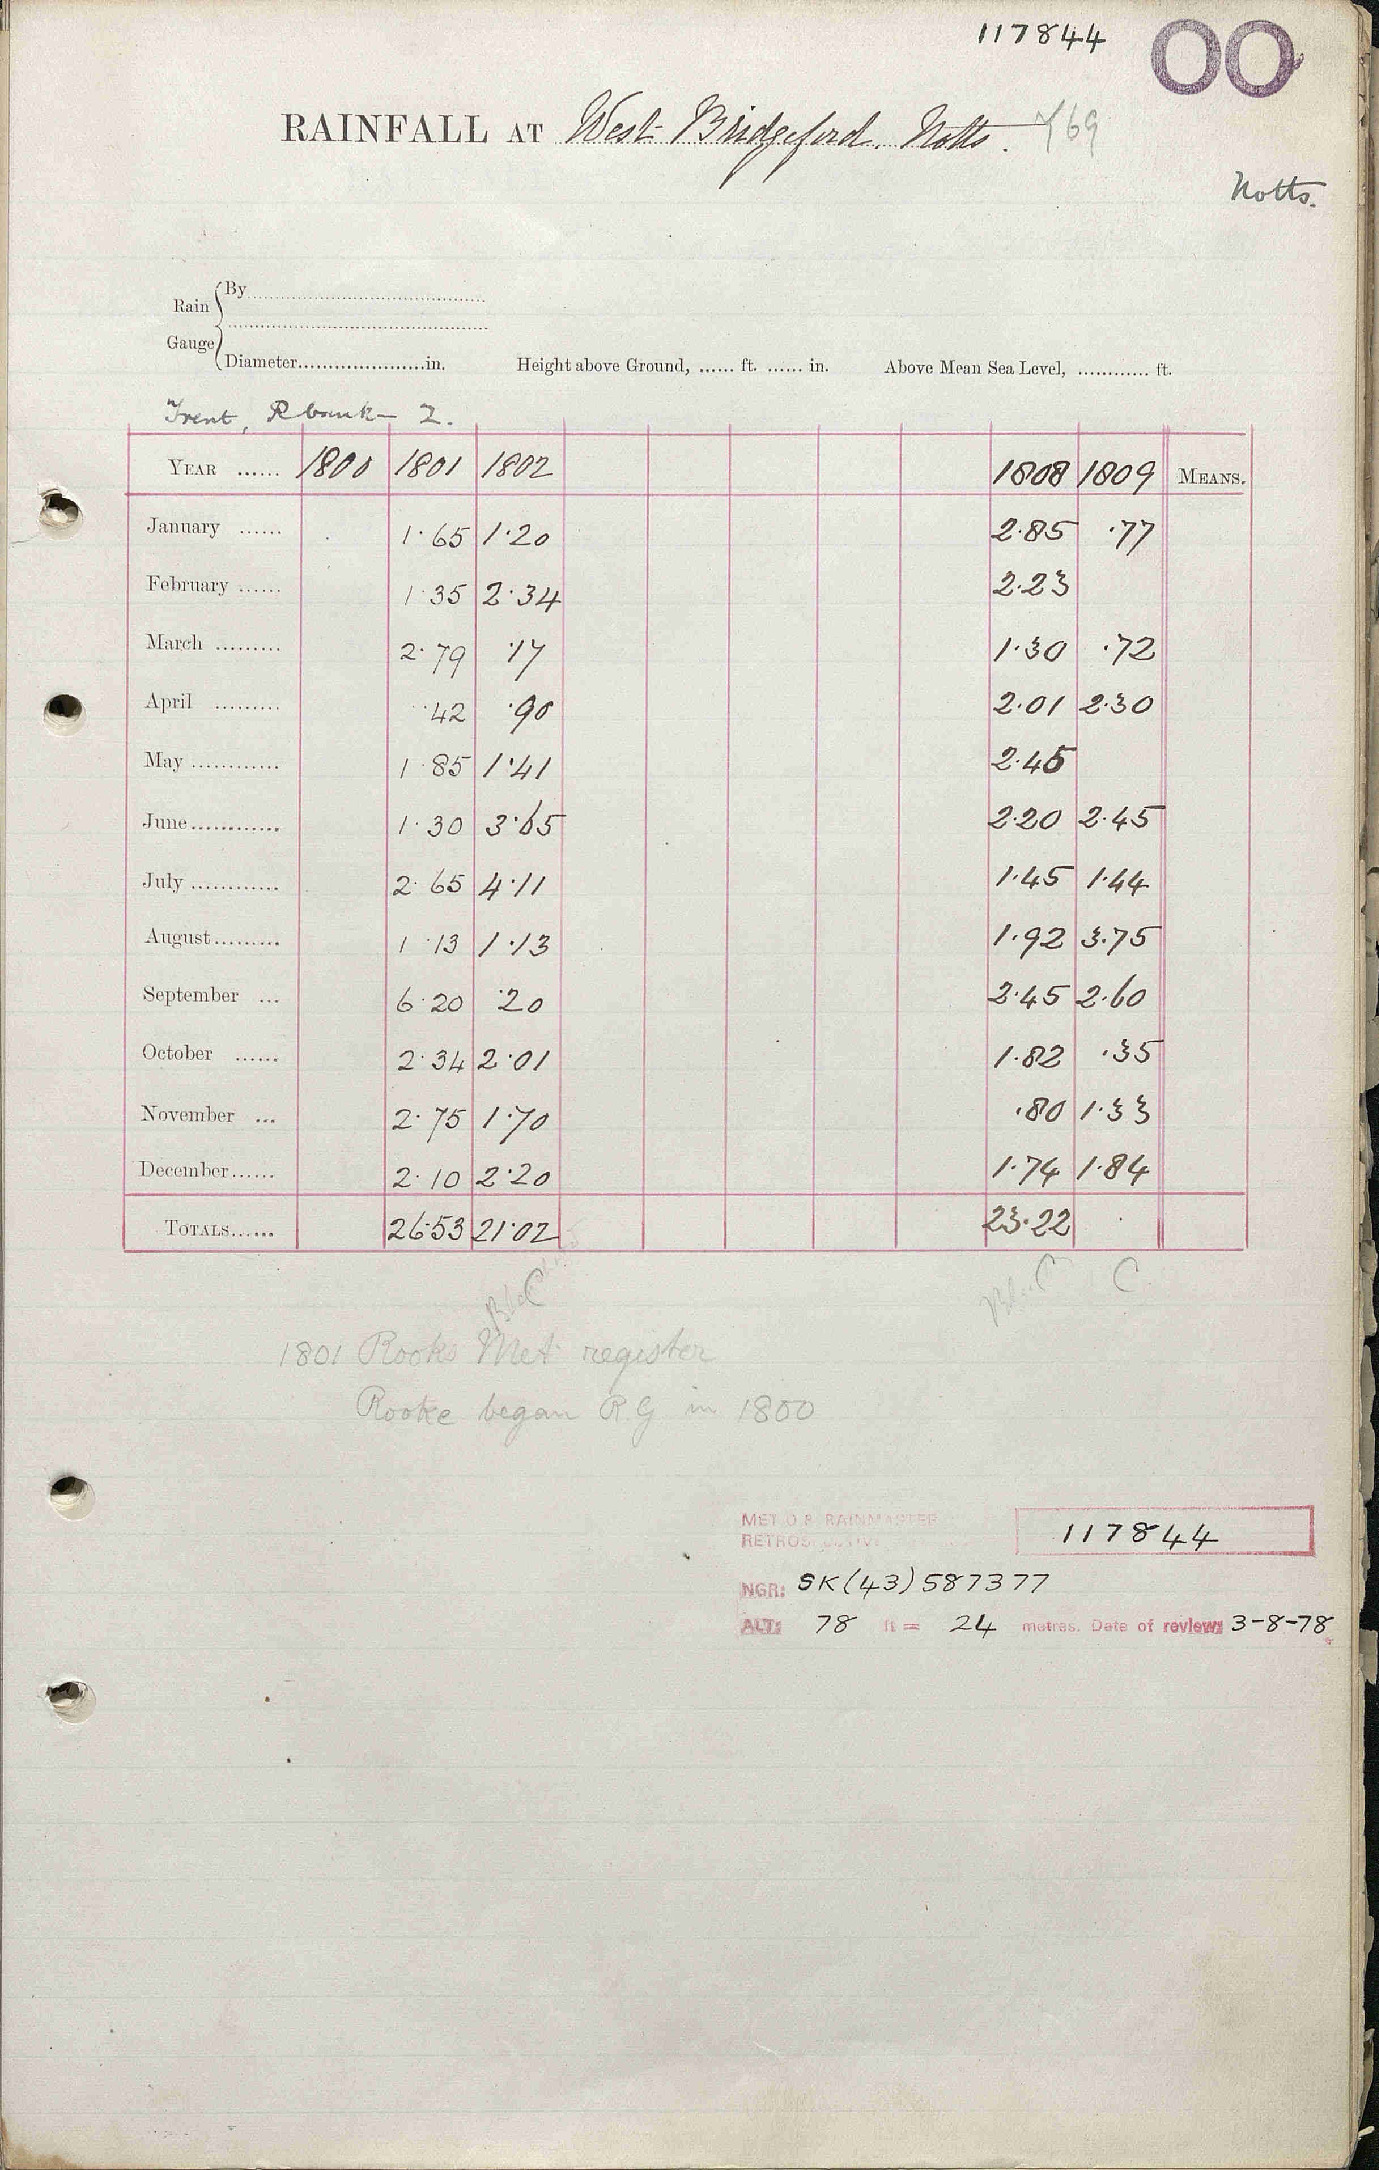 117844 OO
RAINFALL AT West Bridgeford. Notts.
Notts.
Rain Gauge
By
Diameter in. Height above Ground, ft. in. Above Mean Sea Level, ft.
Trent, R bank
YEAR 1800 1801 1802 1808 1809 MEANS.
January 1·65 1·20 2·85 ·77
February 1·35 2·34 2·23
March 2·79 ·17 1·30 ·72
April ·42 ·90 2·01 2·30
May 1·85 1·41 2·45
June 1·30 3·65 2·20 2·45
July 2·65 4·11 1·45 1·44
August 1·13 1·13 1·92 3·75
September 6·20 ·20 2·45 2·60
October 2·34 2·01 1·82 ·35
November 2·75 1·70 ·80 1·33
December 2·10 2·20 1·74 1·84
TOTALS 26·53 21·02 23·22
C C C
1801 Rooks Met register
Rooke began R.G in 1800
MET O 8 RAINMASTER
117844
NGR: SK(43)587377
ALT: 78 ft = 24 metres. Date of review: 3-8-78